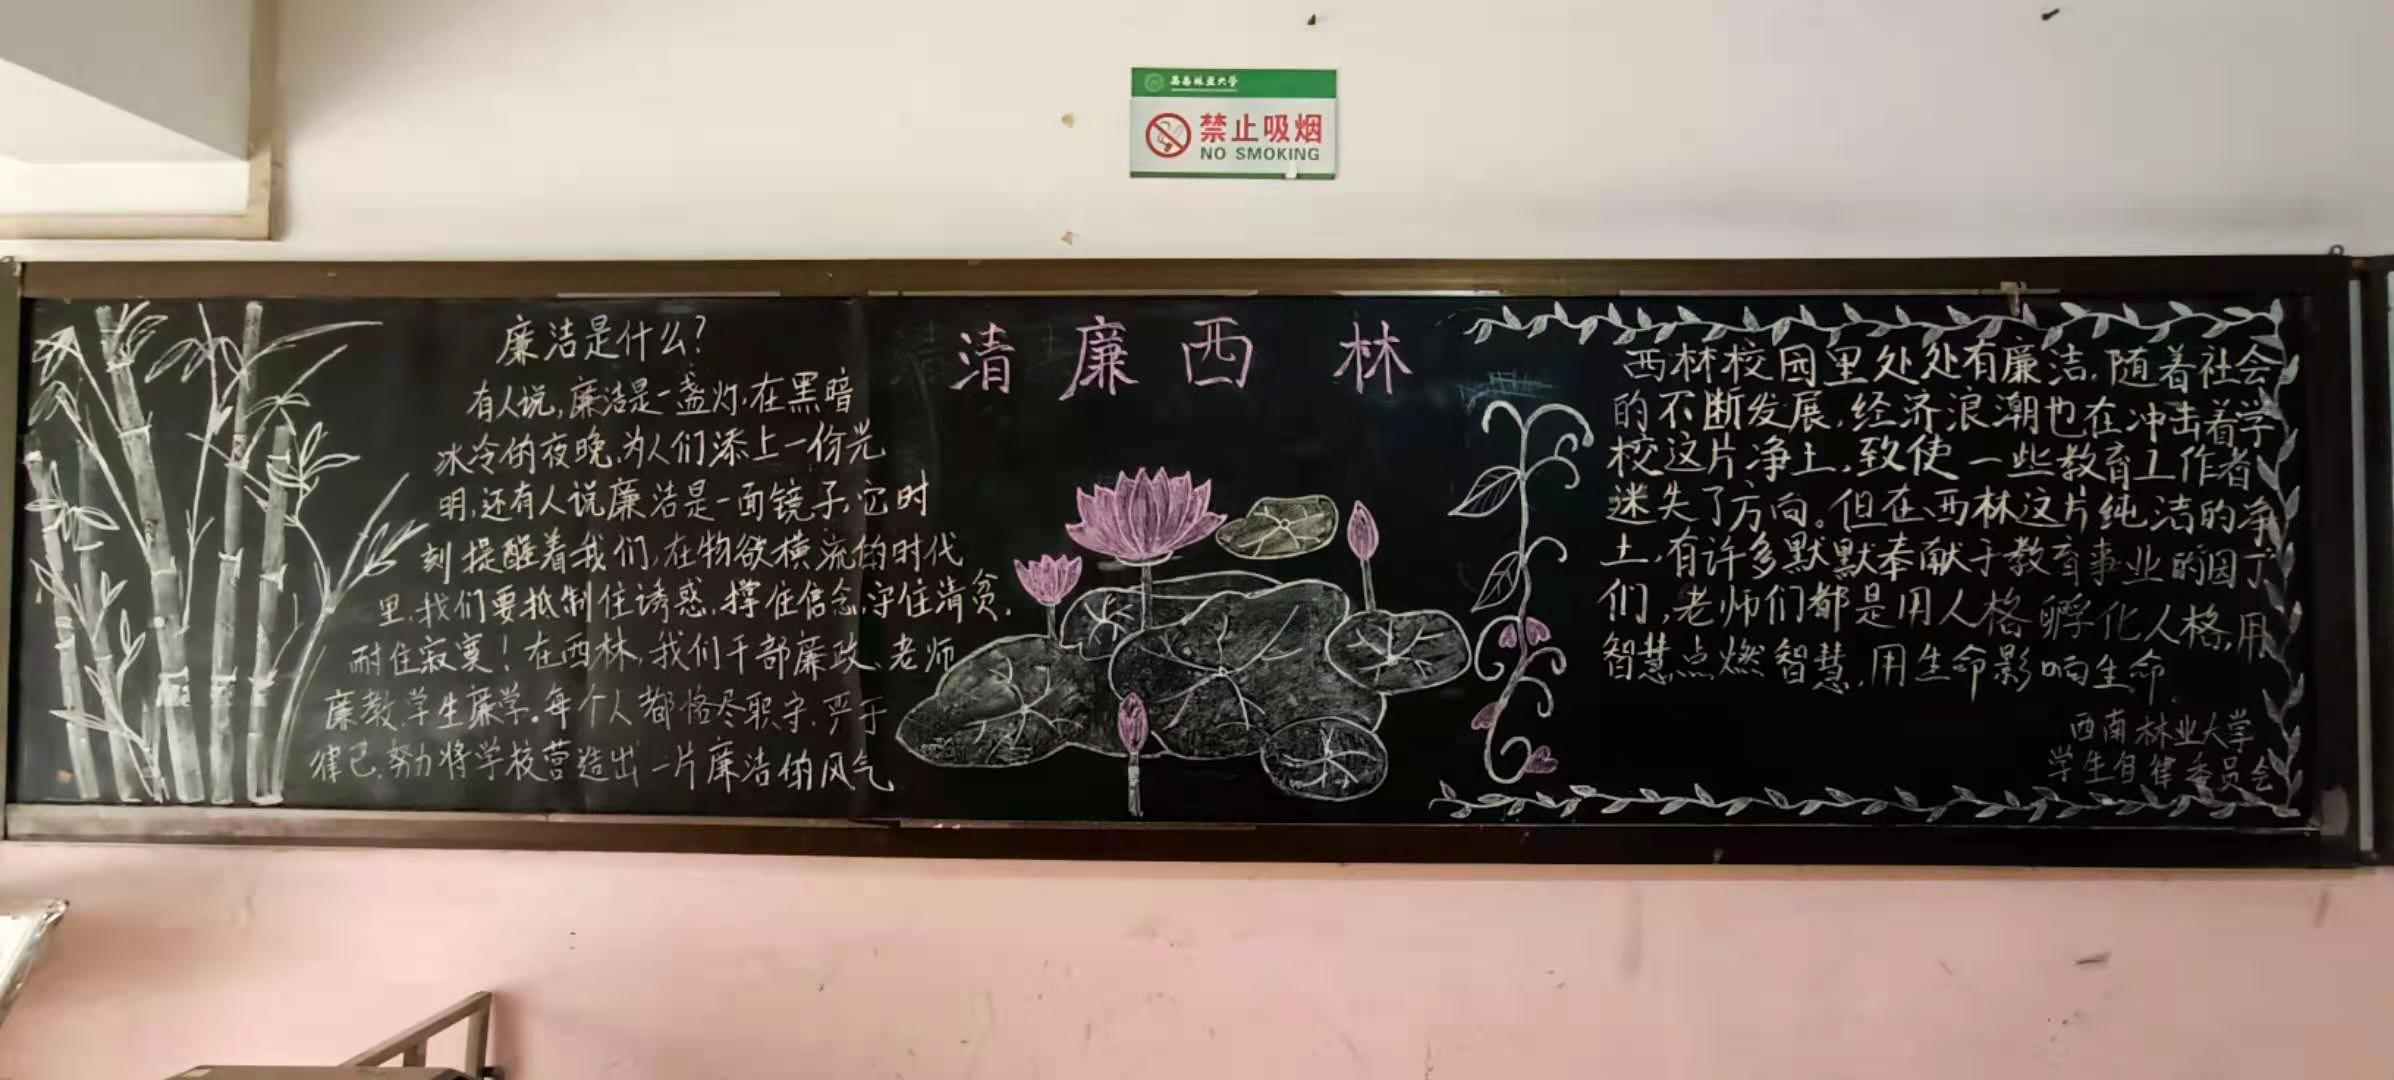 西南林业大学
禁止吸烟
NO SMOKING
廉洁是什么?
有人说,廉洁是一盏灯,在黑暗
冰冷的夜晚,为人们添上一份光
明,还有人说廉洁是一面镜子,它时
刻提醒着我们,在物欲横流的时代
里,我们要抵制住诱惑,撑住信念,守住清贫,
耐住寂寞!在西林,我们干部廉政、老师
廉教,学生廉学。每个人都恪尽职守,严于
律己,努力将学校营造出一片廉洁的风气
清廉西林
西林校园里处处有廉洁,随着社会
的不断发展,经济浪潮也在冲击着学
校这片净土,致使一些教育工作者
迷失了方向。但在西林这片纯洁的净
土,有许多默默奉献于教育事业的园丁
们,老师们都是用人格孵化人格,用
智慧点燃智慧,用生命影响生命.
西南林业大学
学生自律委员会